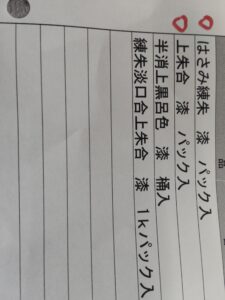 品
はさみ練朱　漆　パック入
上朱合　漆　パック入
半消上黒呂色　漆　桶入
練朱淡口合上朱合　漆　1kパック入